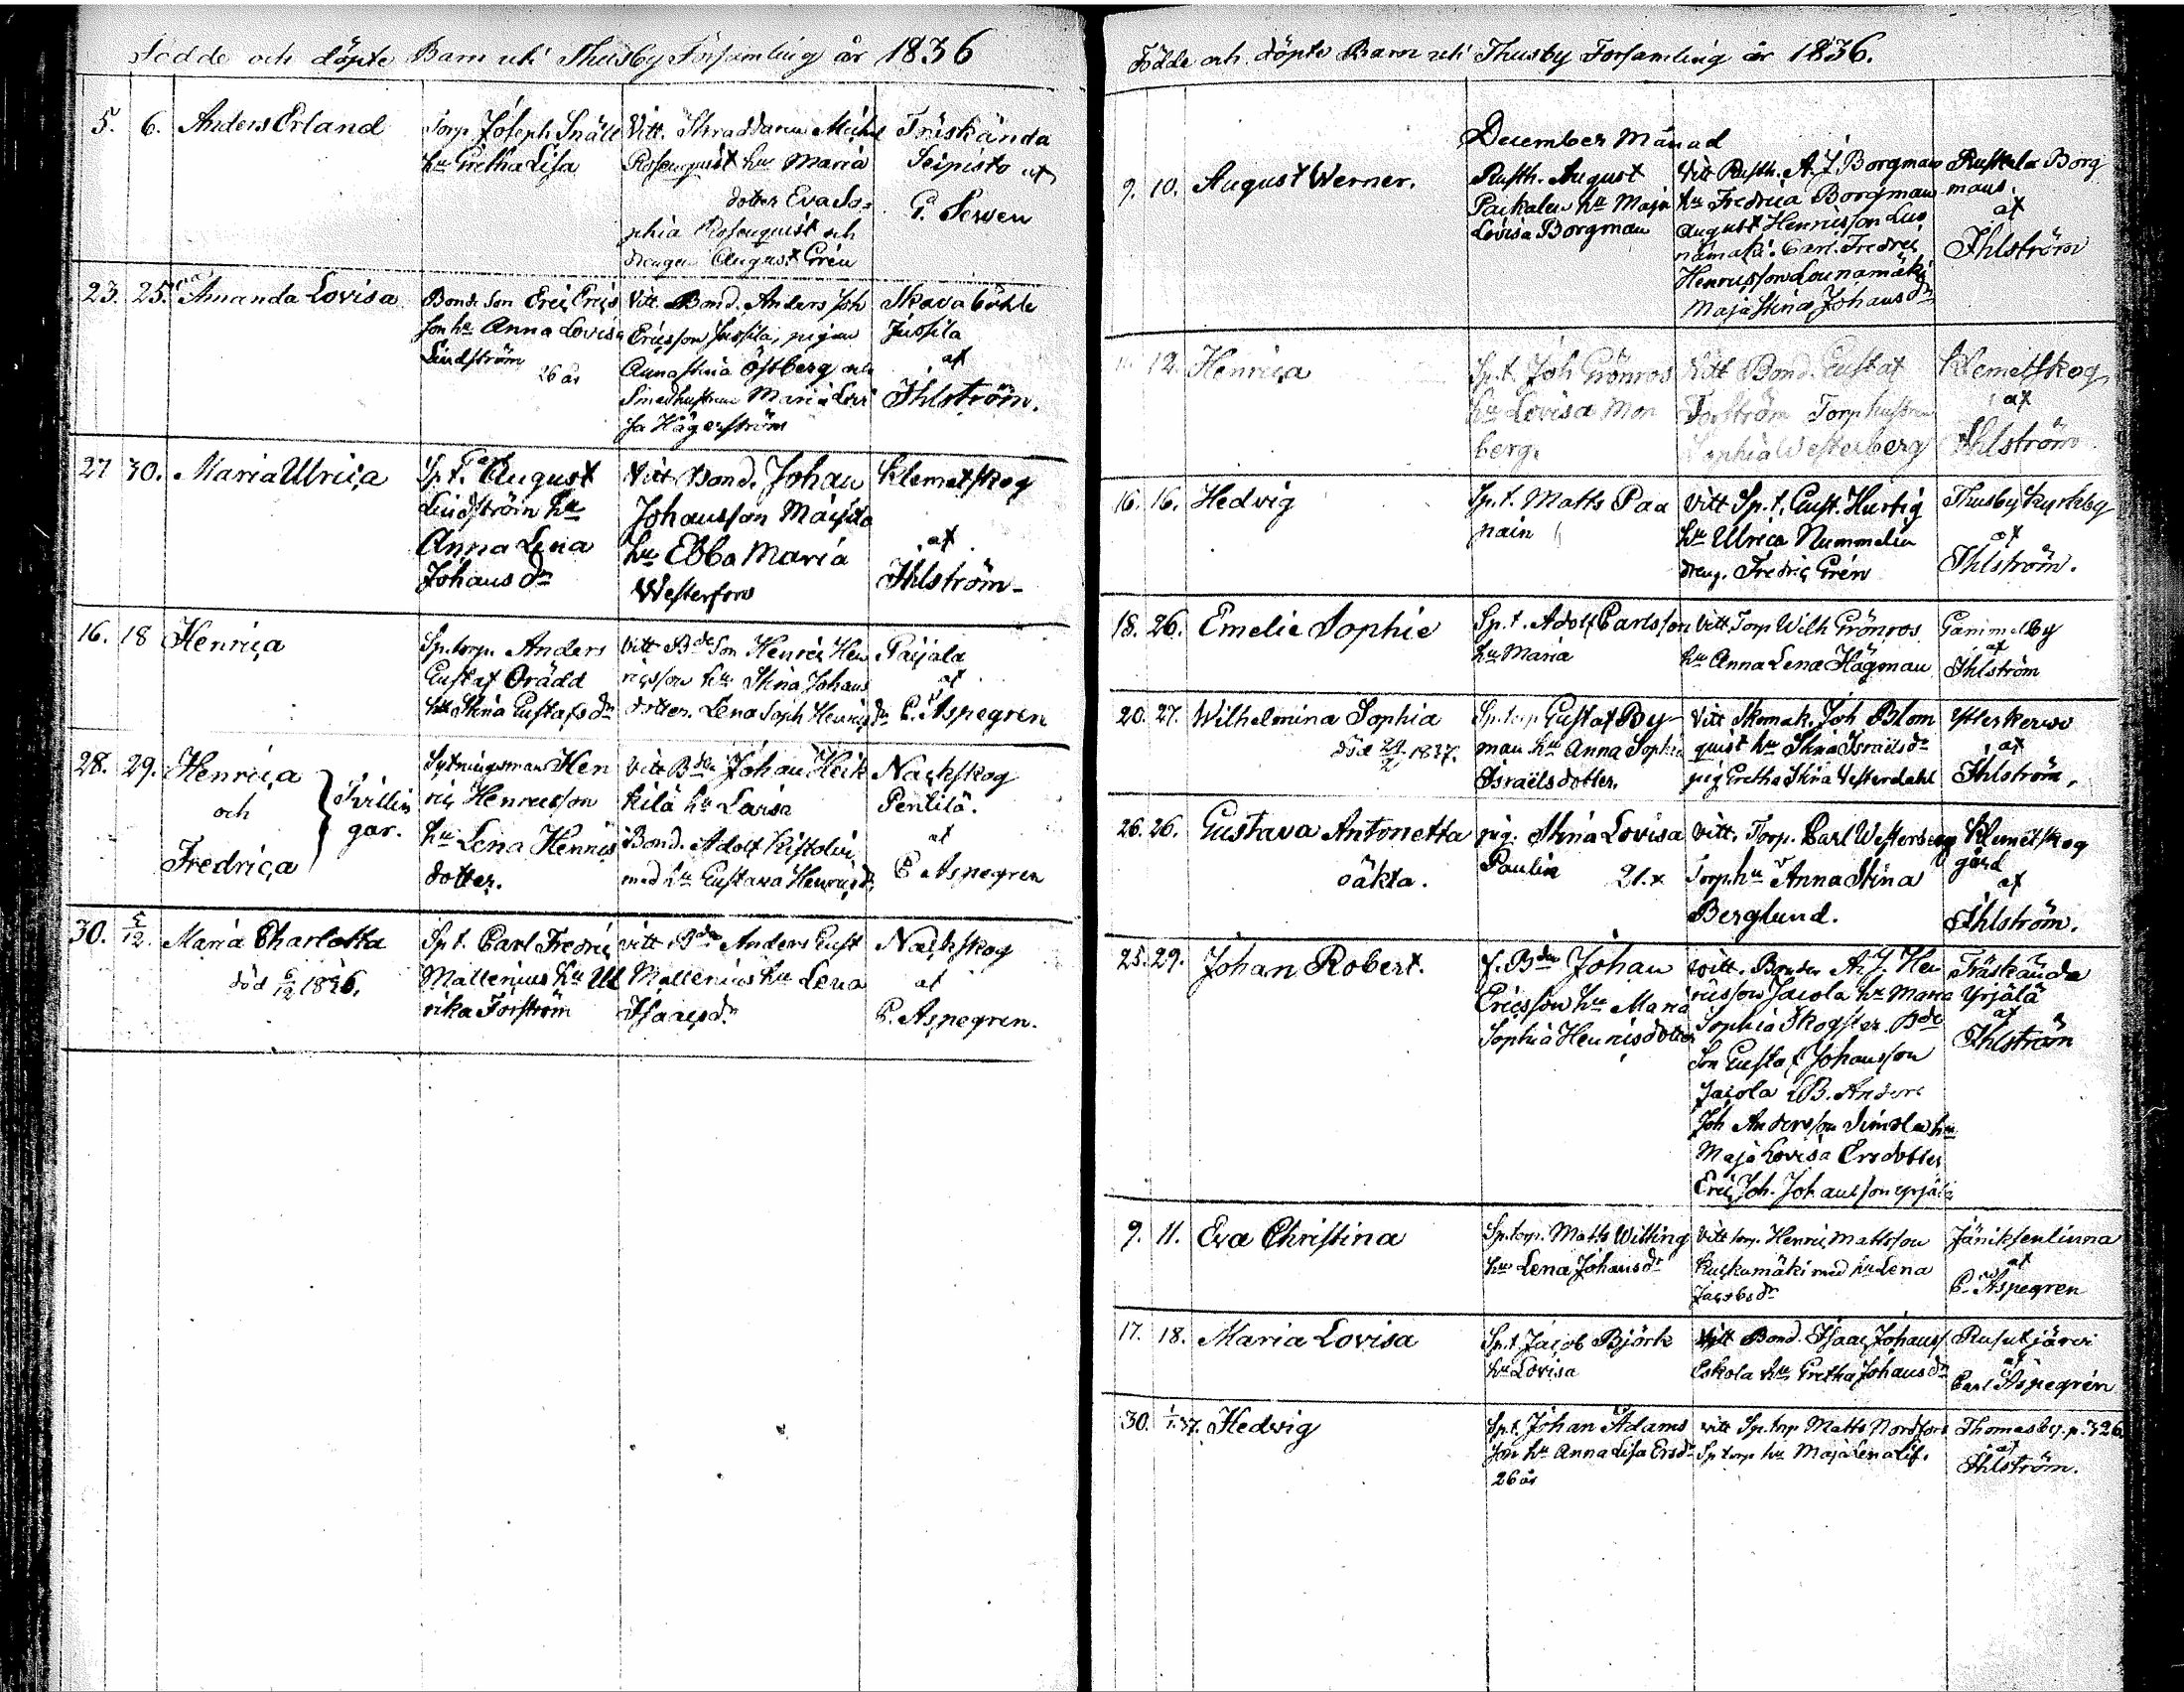 Födde och döpte Barn uti Thusby Församling år 1836
5. 6. Anders Erland
Torp. Joseph Snäll
hu Gretha Lisa
Vitt. Skraddaren Michel
Rosenquist hu Maria
dotter Eva So=
phia Rosenquist och
drengen August Grén
Träskända
Seipisto af
P. Serven
23. 25. Amanda Lovisa
Bond. Son Eric Erics
son hu Anna Lovisa
Lindström
26 år
Vitt. Bond. Anders Joh
Ericsson Jussila, pigan
Anna Stina Östberg och
Smedhustrun Maria Lovi
sa Hägerström
Skavaböhle
Jussila
af
Ihlström.
27 30. Maria Ulrica
Sp.t. Carl August
Lindström hu
Anna Lena
Johans dr
Vitt. Bond. Johan
Johansson Maisila
hu Ebba Maria
Westerfors
Klemetskog
af
Ihlström
16. 18 Henrica
Sp.torp. Anders
Gustaf Orädd
hu Stina Gustafs dr
Vitt Bde Son Henric Hen
ricsson hu Stina Johans
dotter. Lena Soph Henrics dr
Paijala
af
C. Aspegren
28. 29. Henrica
och
Fredrica
Tvillin
gar.
Sytningsman Hen
ric Henricsson
hu Lena Henrics
dotter.
Vitt Bden Johan Heik
kilä hu Lovisa
Bond. Adolf Kistolvi
med hu Gustava Henrics dr
Nackskog
Pentilä.
af
C Aspegren
30. 5/12. Maria Charlotta
död 6/12 1836.
Sp.t. Carl Fredric
Mallenius hu Ul
rika Forström
Vitt Bde Anders Gust
Mallenius hu Lena
Isaacs dr
Nackskog
af
C. Aspegren.
Födde och döpte Barn uti Thusby Forsamling år 1836.
December Månad
9. 10. August Werner.
Rusth. August
Paikalen hu Maja
Lovisa Borgman
Vitt Rusth. A. J Borgman
hu Fredrica Borgman
August Henricsson Lou
namäki. Carl. Fredric
Henricsson Lounamäki
Maja Stina Johans dr
Ruskela Borg
mans.
af
Ihlström
12. Henrica
Sp.t. Joh Grönros
hu Lovisa Mon
berg.
Vitt Bond. Gustaf
Forström Torp hustrun
Sophia Westerberg
Klemetskog
af
Ihlström
16. 16. Hedvig
Sp.t. Matts Paa
nain
Vitt Sp.t. Gust. Hurtig
hu Ulrica Nummelin
dreng. Fredric Grén
Thusby Kyrkby
af
Ihlström.
18. 26. Emelie Sophie
Sp.t. Adolf Carlsson
hu Maria
Vitt Torp Wilh Grönros
hu Anna Lena Hägman
Gammelby
af
Ihlström
20. 27. Wilhelmina Sophia
död 1837.
Sp.torp Gustaf By-
man hu Anna Sophia
Israelsdotter.
Vitt Skomak. Joh Blom
quist hu Stina Israels dr
pig Gretha Stina Westerdahl
Ytterkervo
af
Ihlström.
26. 26. Gustava Antonetta
oäkta.
pig. Stina Lovisa
Paulin 21.
vitt. Torp. Carl Westerberg
Torp. hu Anna Stina
Berglund.
Klemetskog
gård
af
Ihlström.
25. 29. Johan Robert.
f. Bden Johan
Ericsson hu Maria
Sophia Henricsdotter
Vitt. Bonden A. J. Hen
ricsson Jacola hu Maria
Sophia Skogster. Bde
Son Gustaf Johansson
Jacola Anders
Joh Andersson Simola hu
Maja Lovisa Ersdotter
Eric Joh. Johansson Yrjälä
Träskända
Yrjälä
af
Ihlström
9. 11. Eva Christina
Sp.torp. Matts Witting
hu Lena Johans dr
Vitt torp. Henric Mattsson
Kuskamäki med hu Lena
Jacobs dr
Jäniksenlinna
af
C. Aspegren
17. 18. Maria Lovisa
Sp.t Jacob Björk
hu Lovisa
Vitt Bond. Isaac Johanss
Eskola hu Gretha Johans dr
Rusutjärvi
af
Carl Aspegrén
30. 1/1 37. Hedvig
Sp.t. Johan Adams
son hu Anna Lisa Ers dr
26 år
vitt Sp.torp Matts Nordfors
Sp torp hu Maja Lena Lif.
Thomasby. p. 326
af
Ihlström.